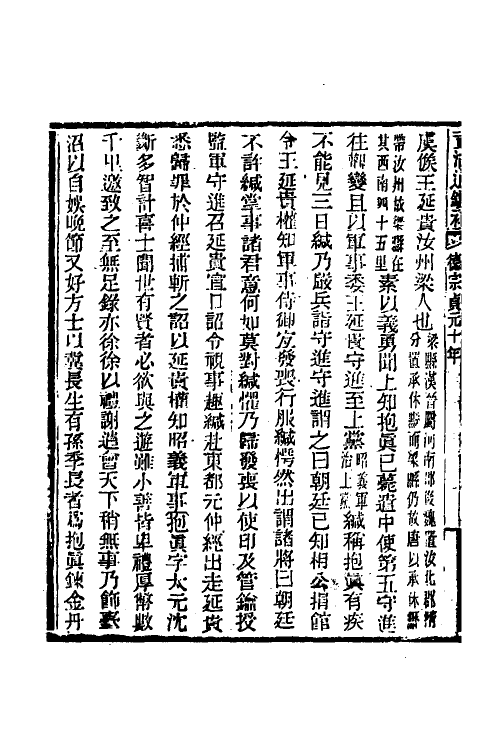 德宗貞元十年
虞候王延貴汝州梁人也梁縣漢晉屬河南郡後魏置汝北郡隋
分置承休縣而梁縣仍故唐以承休縣
帶汝州故梁縣在
其西南四十五里素以義勇聞上知抱眞已薨遣中使第五守進
往觀變且以軍事委王延貴守進至上黨昭義軍治上黨緘稱抱眞有疾
不能見三日緘乃嚴兵詣守進守進謂之曰朝廷已知相公捐館
令王延貴權知軍事侍御宜發喪行服緘愕然出謂諸將曰朝廷
不許緘掌事諸君意何如莫對緘懼乃歸發喪以使印及管鑰授
監軍守進召延貴宣口詔令視事趣緘赴東都元仲經出走延貴
悉歸罪於仲經捕斬之詔以延貴權知昭義軍事抱眞字太元沈
斷多智計喜士聞世有賢者必欲與之遊雖小善皆卑禮厚幣數
千里邀致之至無足錄亦徐徐以禮謝遣會天下稍無事乃飾臺
沼以自娛晚節又好方士以冀長生有孫季長者爲抱眞鍊金丹